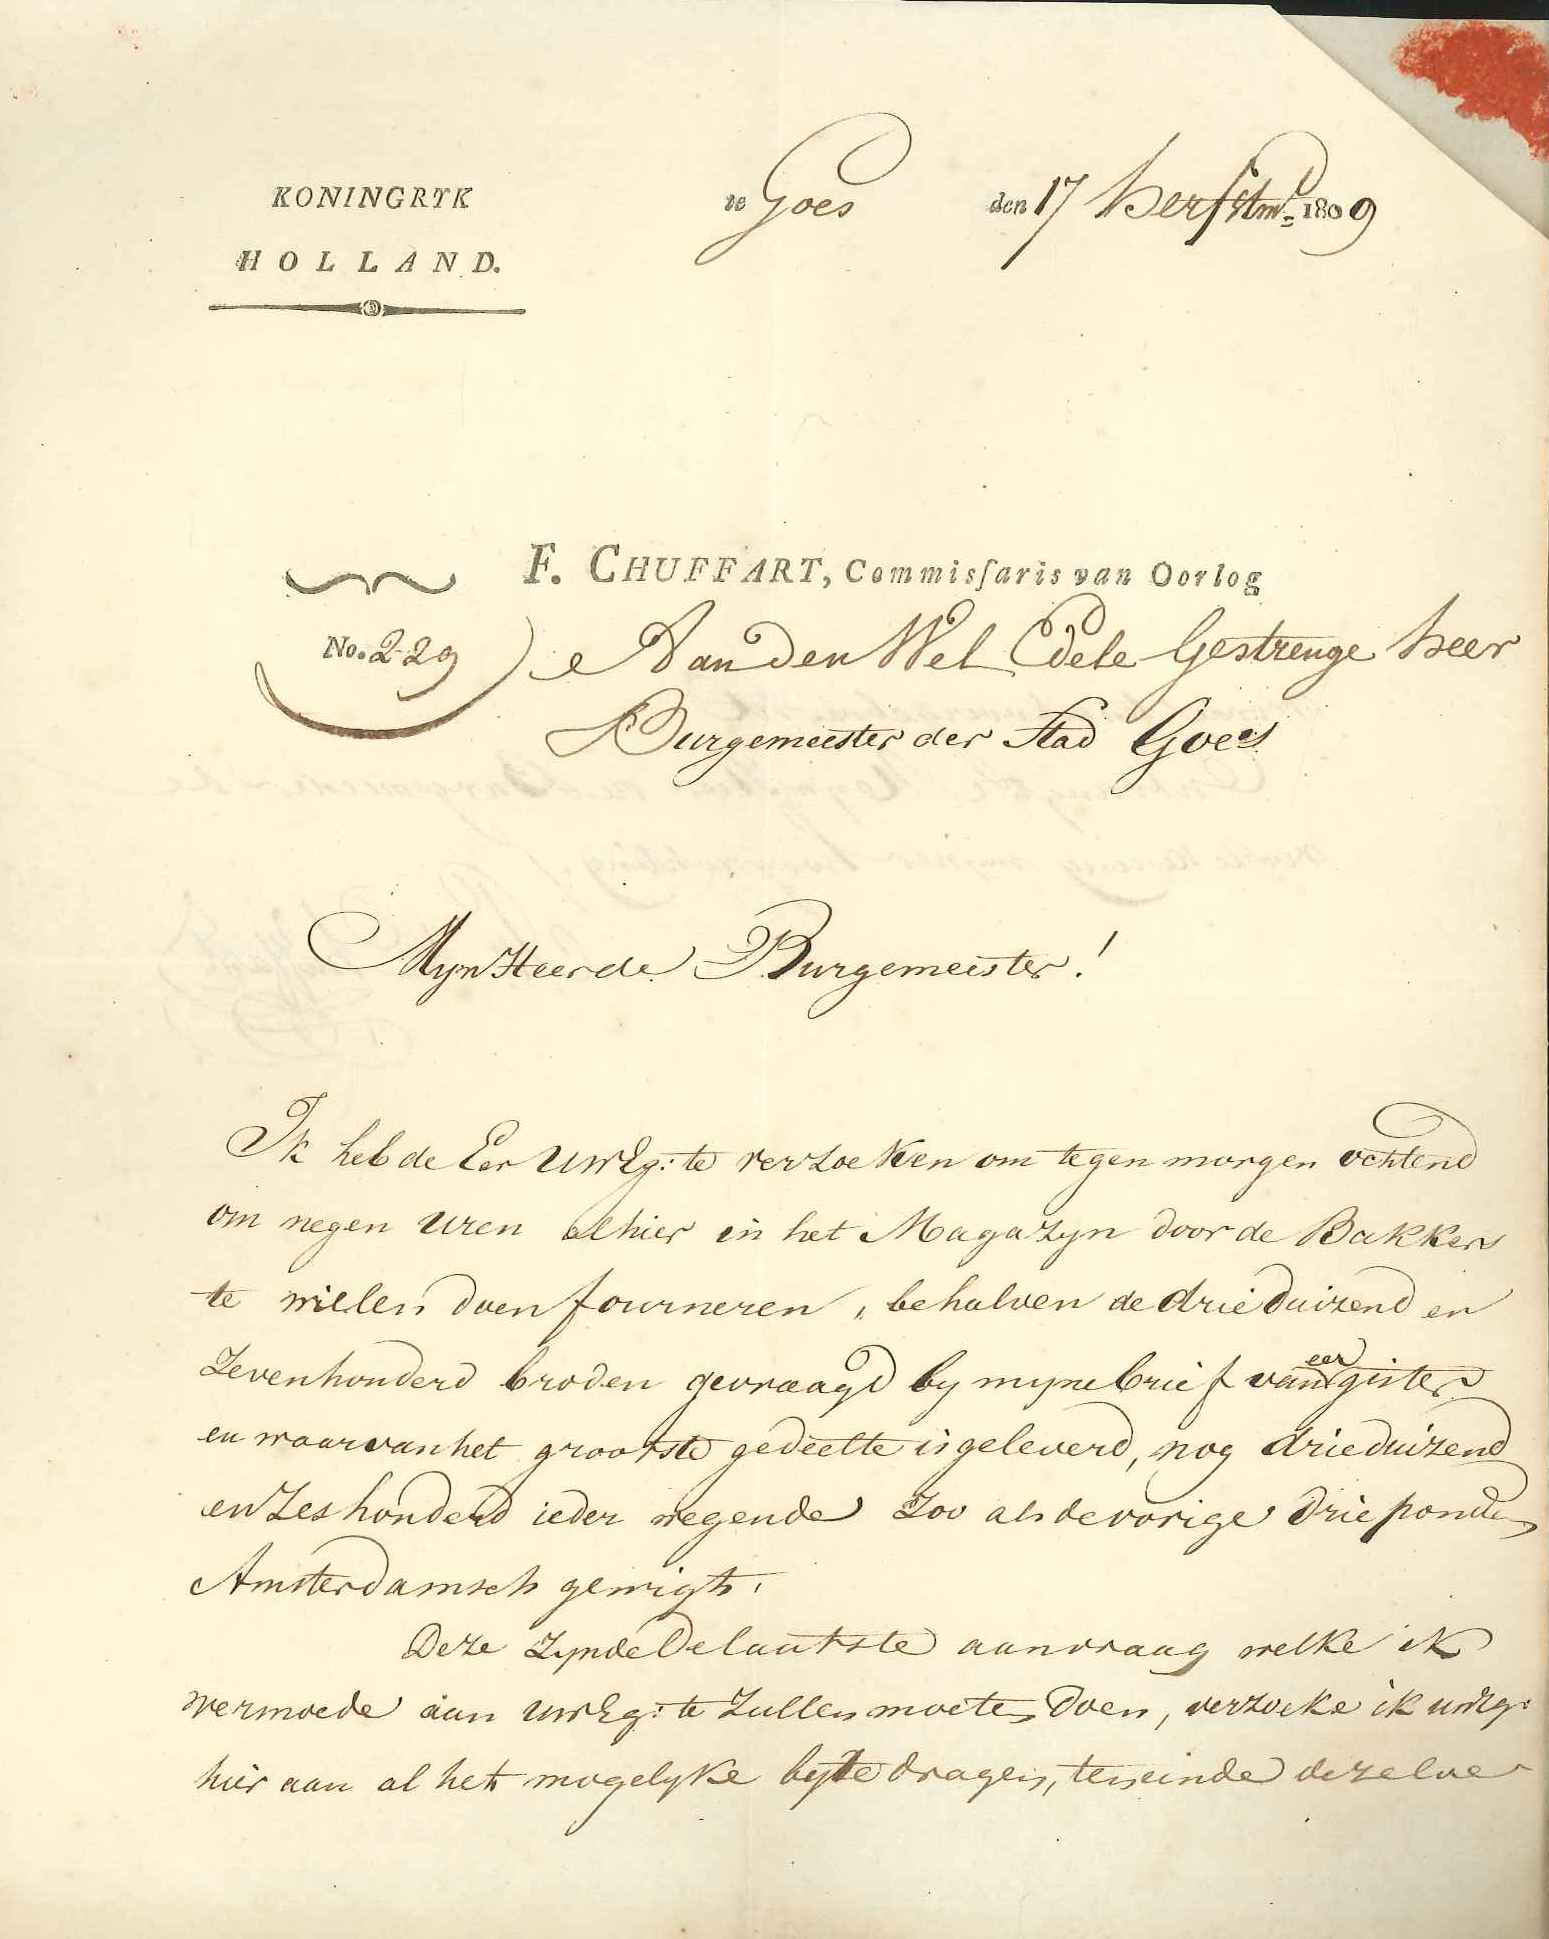 KONINGRYK
HOLLAND.
te Goes den 17 herfstmd 1809
F. CHUFFART, Commisſaris van Oorlog
No. 229
Aan den Wel Edele Gestrenge heer
Burgemeester der Stad Goes
Myn Heer de Burgemeester!
Ik heb de Eer UWEg: te verzoeken om tegen morgen ochtend
om negen uren alhier in het Magazyn door de Bakkers
te willen doen fourneren, behalven de drie duizend en
Zevenhonderd broden gevraagd by myne brief van eer gister
en waar van het grootste gedeelte is geleverd, nog drie duizend
en Zes honderd ieder wegende Zoo als de vorige drie ponden
Amsterdamsch gewigt.
Deze Zynde de laatste aanvraag welke ik
vermoede aan UWEg: te Zullen moeten doen, verzoeke ik UWEg:
hier aan al het mogelyke by te dragen, ten einde dezelve